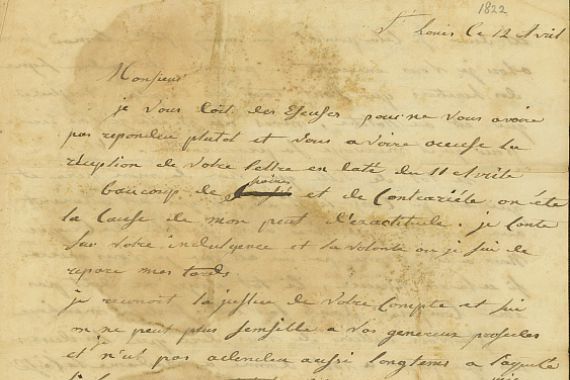 1822
St Louis le 12 Avril
Monsieur
je vous doit des Escuses pour ne vous avoire
pas repondeu plutot et vous avoire accuse la
reception de votre lettre en date du 11 Avrile
poires
boucoup de et de Contrariété on été
la Cause de mon peut d'exactitude. je conte
sur votre indulgence et la volonté ou je sui de
repare mes tords.
je reconoit la justice de votre Compte et sui
on ne peut plus sensible a vos genereux procedes
et n'eut pas attendeu aussi longtems a